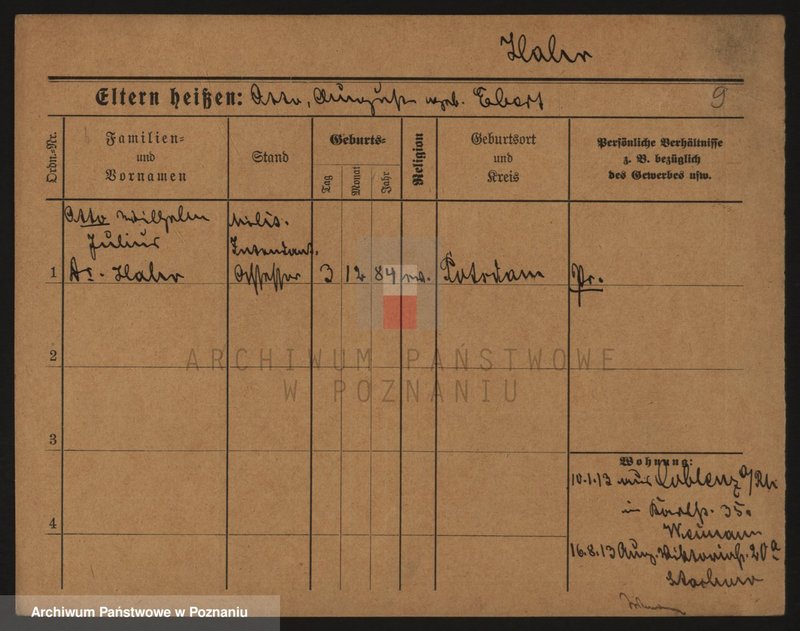 Haler
Eltern heißen: Otto, Auguste geb. Ebert
9
Ordn.-Nr.
Familien=
und
Vornamen
Stand
Geburts=
Tag
Monat
Jahr
Religion
Geburtsort
und
Kreis
Persönliche Verhältnisse
z. B. bezüglich
des Gewerbes usw.
Otto Wilhelm
Julius
Milit.
Intendant.
1
Dr. Haler
Assessor
3
12
84
ev.
Potsdam
Pr.
2
ARCHIWUM PAŃSTWOWE
W POZNANIU
3
Wohnung:
10.1.13 aus Coblenz a/Rh
in
35.
4
Neumann
16.8.13 Aug. Viktoriastr. 20a
Archiwum Państwowe w Poznaniu